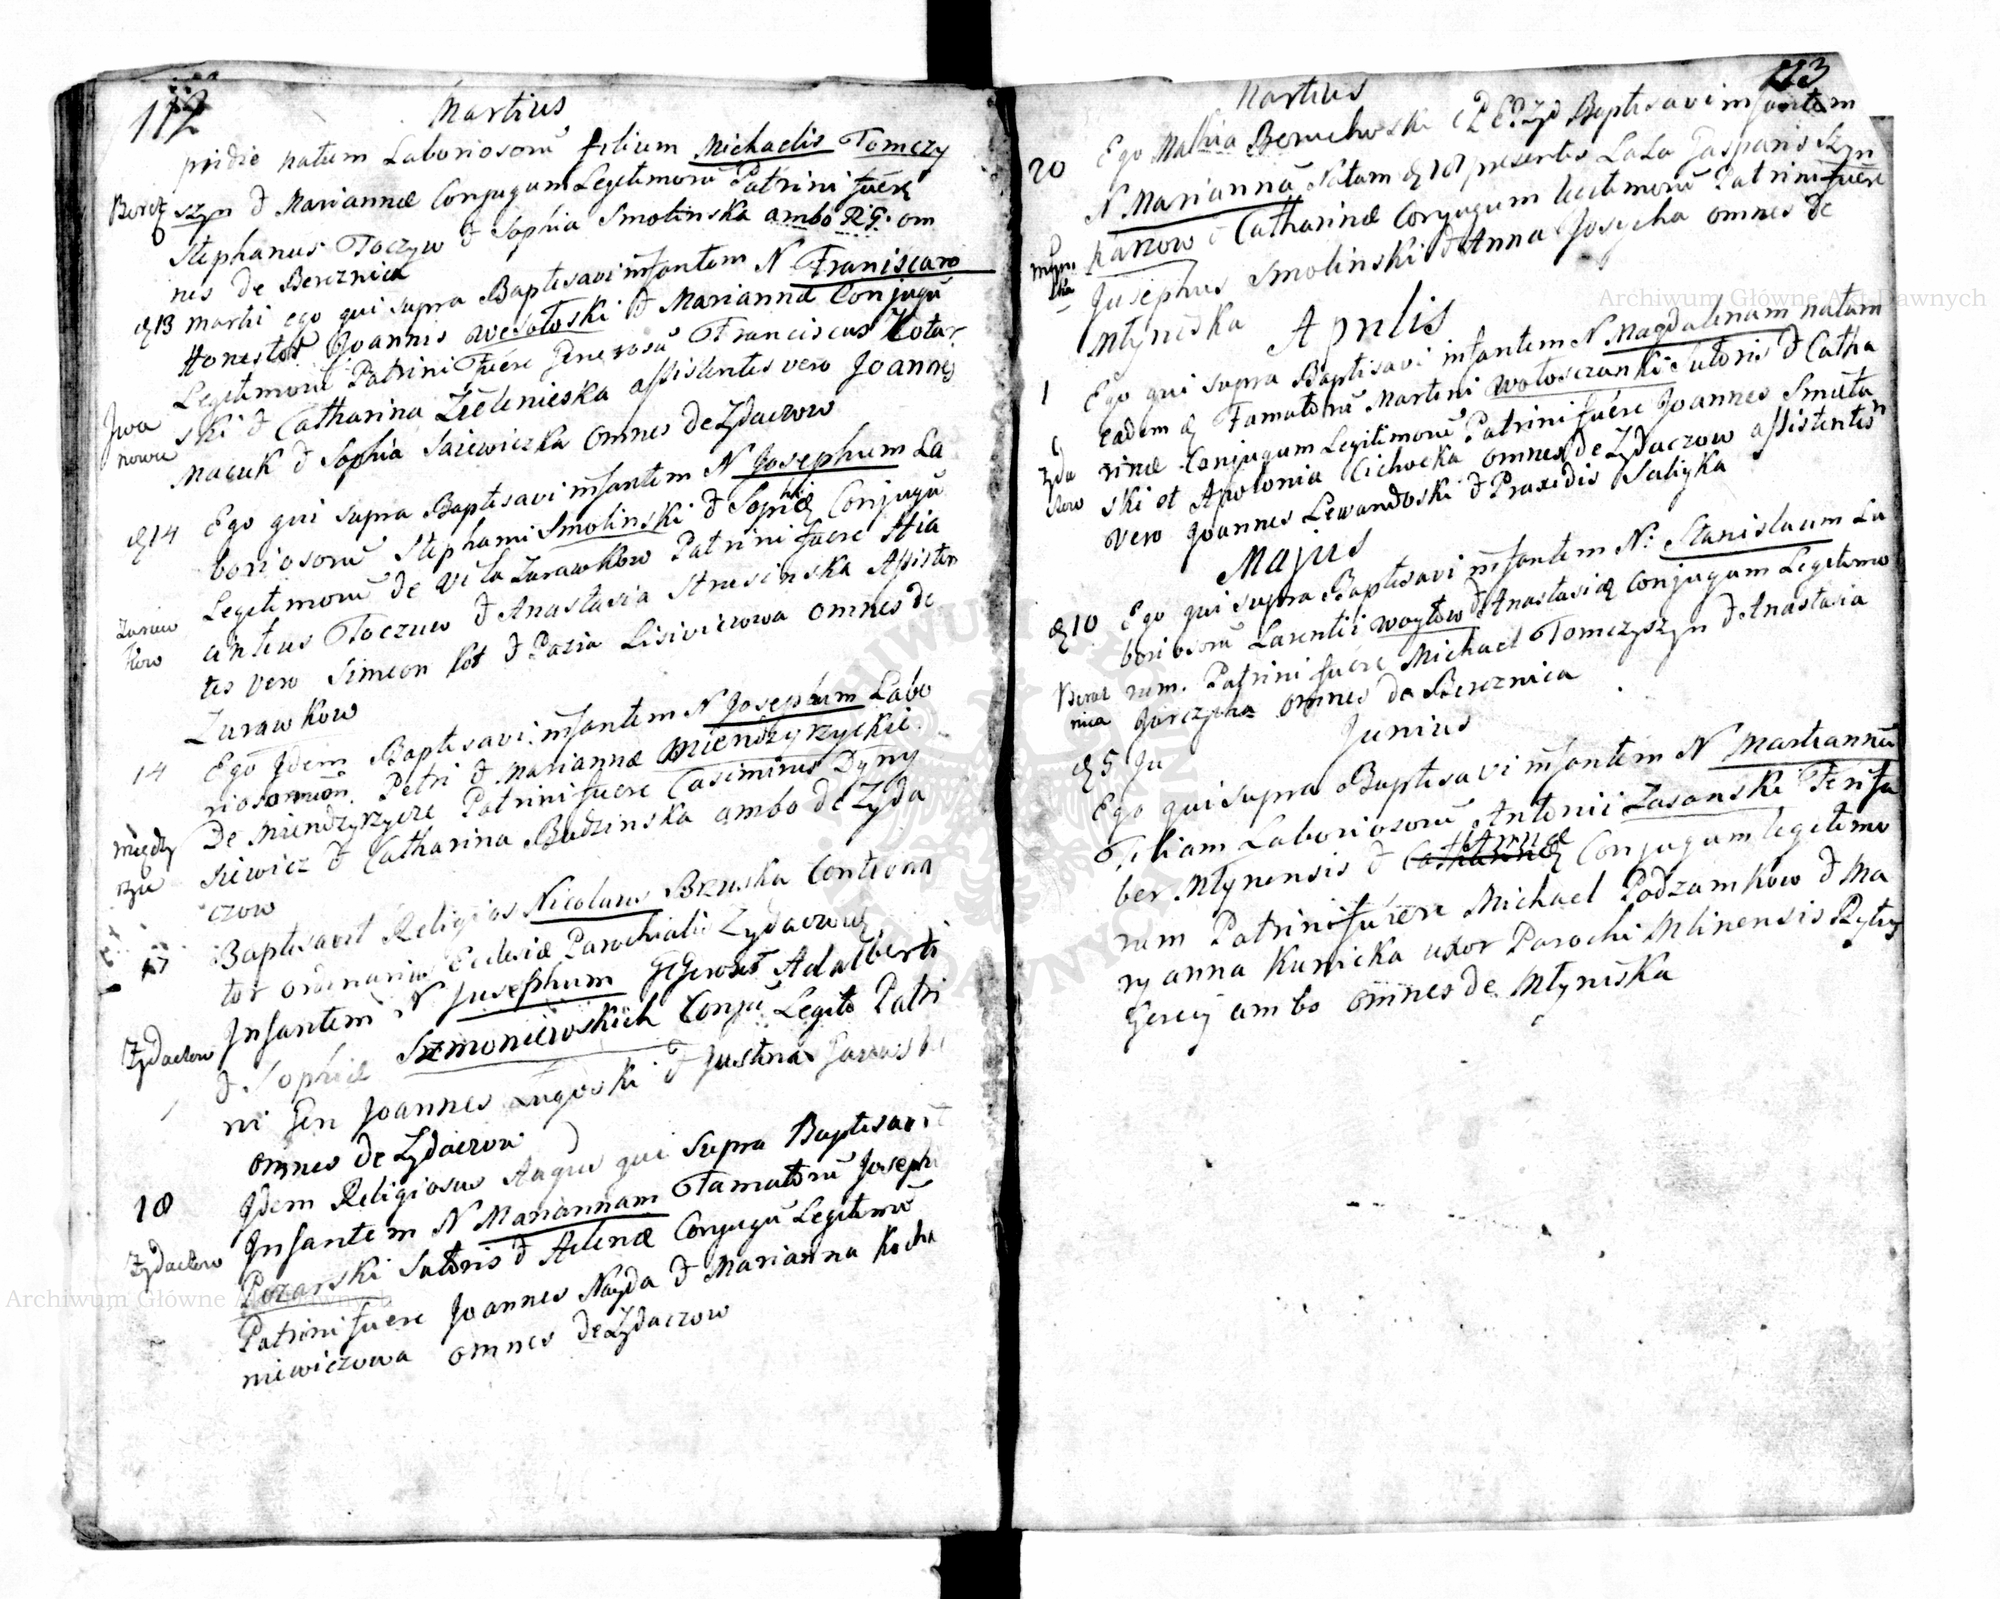 112
Martius
pridie natum Laboriosorū filium Michaelis Tomczy
Berez szyn & Mariannæ Conjugum Legitimorū Patrini fuere
Stephanus Toczyw & Sophia Smolinska ambo R: G: om
nes de Bereznica
13 Martii ego qui supra Baptisavi infantem N Franiscam
Honestor Joannis Wesołoski & Mariannæ Conjugū
Legitimorū Patrini Fuere Generosū Franciscus Kotar
Iwa
nowce
ski & Catharina Zielenieska assistentes vero Joannes
Macuk & Sophia Saiewiczka omnes de Zydaczow
14 Ego qui supra Baptisavi infantem N Josephum La
boriosorū Stephani Smolinski & Sophiæ Conjugū
Legitimorū de Villa Zurawkow Patrini fuere Hia
Zuraw
kow
cintus Toczuw & Anastasia Strusinska Assisten
tes vero Simeon Kot & Pazia Lisiviczowa omnes de
Zurawkow
14 Ego Idem Baptisavi infantem N Josephum Labo
riosorum Petri & Mariannæ Miendzyrzyckie
De Miendzyrzycze Patrini fuere Casimirus Dyny
Między
rzycze
kiewicz & Catharina Budzinska ambo de Zyda
czow
17 Baptisavit Religios Nicolaus Brzuska Contiona
tor ordinarius Eclesiæ Parochialis Zydaczovi
Infantem N Josephum GGeroso Adalberti
Zydaczow
& Sophiæ Szmoniewskich Conju Legito Patri
ni Gen Joannes Ługoski & Justina
omnes de Zydaczow
18 Idem Religiosus qui Supra Baptisavit
Infantem N Mariannam Famatorū Josephi
Zydaczow
Pozarski Sutoris & Helenæ Conjugū Legitimorū
Patrini fuere Joannes Nayda & Marianna Kocha
niewiczowa omnes de Zydaczow
113
Martius
20 Ego Mathia Beruchoski Baptisavi infantem
N Mariannā Natam 18 presentis LaLo Gasparis Szyn
karzow & Catharinæ Conjugum Legitimorū Patrini fuere
Młyni
ska
Josephus Smolinski & Anna Josycha omnes de
Młyniska
Aprilis
1 Ego qui supra Baptisavi infantem N Magdalenam natam
eadem Famatorū Martini Wołosczanki Sutoris & Catha
Zyda
czow
rinæ Conjugum Legitimorū Patrini fuere Joannes Smuta
ski et Apolonia Cichocka omnes de Zydaczow assistentes
vero Joannes Lewandoski & Praxidis Saliyka
Majus
10 Ego qui supra Baptisavi infantem N: Stanislaum La
boriosorū Larentii Woytow & Anastasiæ Conjugum Legitimo
Berez
nica
rum. Patrini fuere Michael Tomczyszyn & Anastasia
Jurczyna omnes de Bereznica
Junius
5 Ju
Ego qui supra Baptisavi infantem N Mariannā
Filiam Laboriosorū Antonii Zasanski Ferifa
ber Młynensis & Annæ Conjugum legitimo
rum Patrini fuere Michael Podzamkow & Ma
ryanna Kunicka uxor Parochi Mlinensis Rytus
Greci ambo omnes de Młyniska
Archiwum Główne Akt Dawnych
Archiwum Główne Akt Dawnych